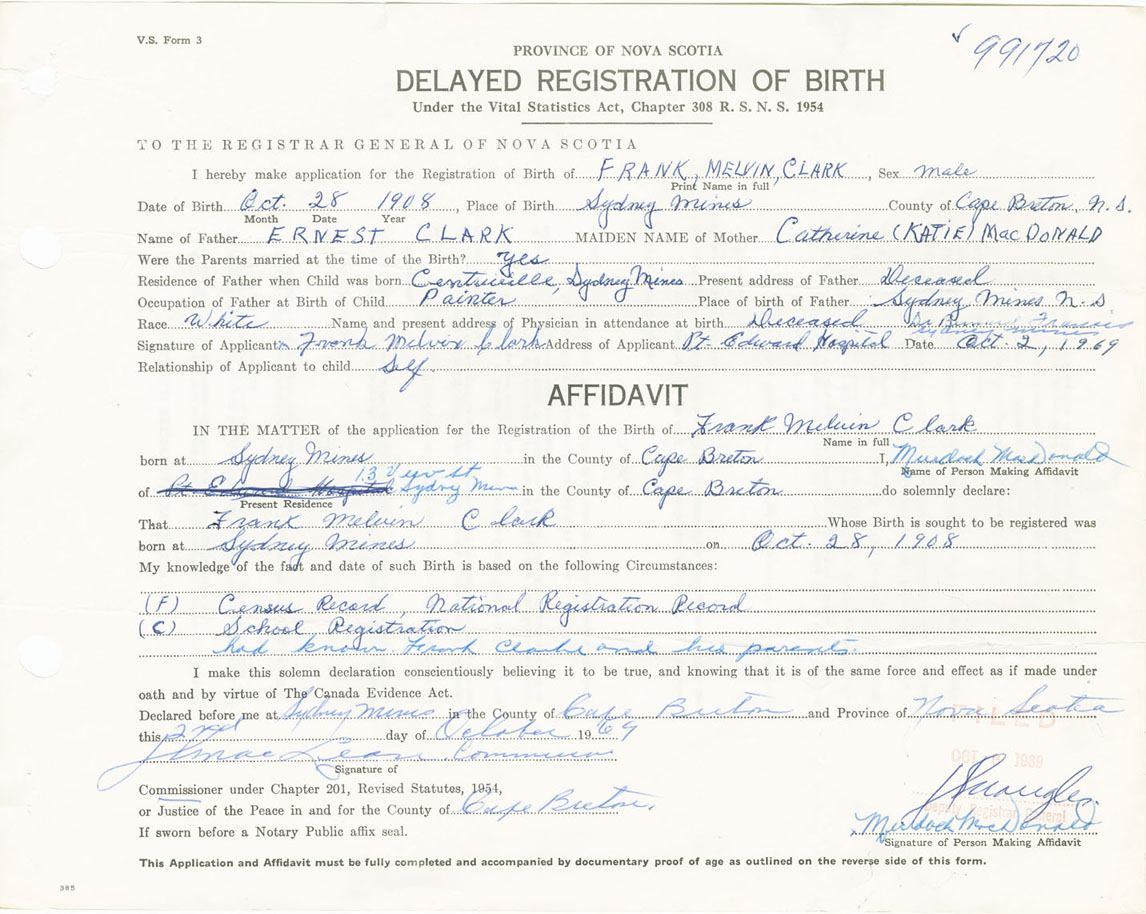 V.S. Form 3
991720
PROVINCE OF NOVA SCOTIA
DELAYED REGISTRATION OF BIRTH
Under the Vital Statistics Act, Chapter 308 R. S. N. S. 1954
TO THE REGISTRAR GENERAL OF NOVA SCOTIA
I hereby make application for the Registration of Birth of FRANK, MELVIN, CLARK, Sex male
Print Name in full
Date of Birth Oct. 28 1908, Place of Birth Sydney Mines County of Cape Breton, N.S.
Month Date Year
Name of Father ERNEST CLARK MAIDEN NAME of Mother Catherine (KATIE) MacDONALD
Were the Parents married at the time of the Birth? Yes
Residence of Father when Child was born Centreville, Sydney Mines Present address of Father Deceased
Occupation of Father at Birth of Child Painter Place of birth of Father Sydney Mines N-S
Race White Name and present address of Physician in attendance at birth Deceased Dr. Francis
Sydney Mines
Signature of Applicant x Frank Melvin Clark Address of Applicant Pt. Edward Hospital Date Oct. 2, 1969
Relationship of Applicant to child Self.
AFFIDAVIT
IN THE MATTER of the application for the Registration of the Birth of Frank Melvin Clark
Name in full
born at Sydney Mines in the County of Cape Breton I, Murdoch MacDonald
Name of Person Making Affidavit
of Pt. Edward Hospital 13 St Sydney Mines in the County of Cape Breton do solemnly declare:
Present Residence
That Frank Melvin Clark Whose Birth is sought to be registered was
born at Sydney Mines on Oct. 28, 1908
My knowledge of the fact and date of such Birth is based on the following Circumstances:
(F) Census Record, National Registration Record
(C) School Registration
had known Frank Clarke and his parents.
I make this solemn declaration conscientiously believing it to be true, and knowing that it is of the same force and effect as if made under
oath and by virtue of The Canada Evidence Act.
Declared before me at Sydney Mines in the County of Cape Breton and Province of Nova Scotia
this 2nd day of October 1969
FILED
OCT 1969
MacLean
Signature of
Commissioner under Chapter 201, Revised Statutes, 1954,
or Justice of the Peace in and for the County of Cape Breton.
Deputy Registrar General
If sworn before a Notary Public affix seal.
x Murdoch MacDonald
Signature of Person Making Affidavit
This Application and Affidavit must be fully completed and accompanied by documentary proof of age as outlined on the reverse side of this form.
385